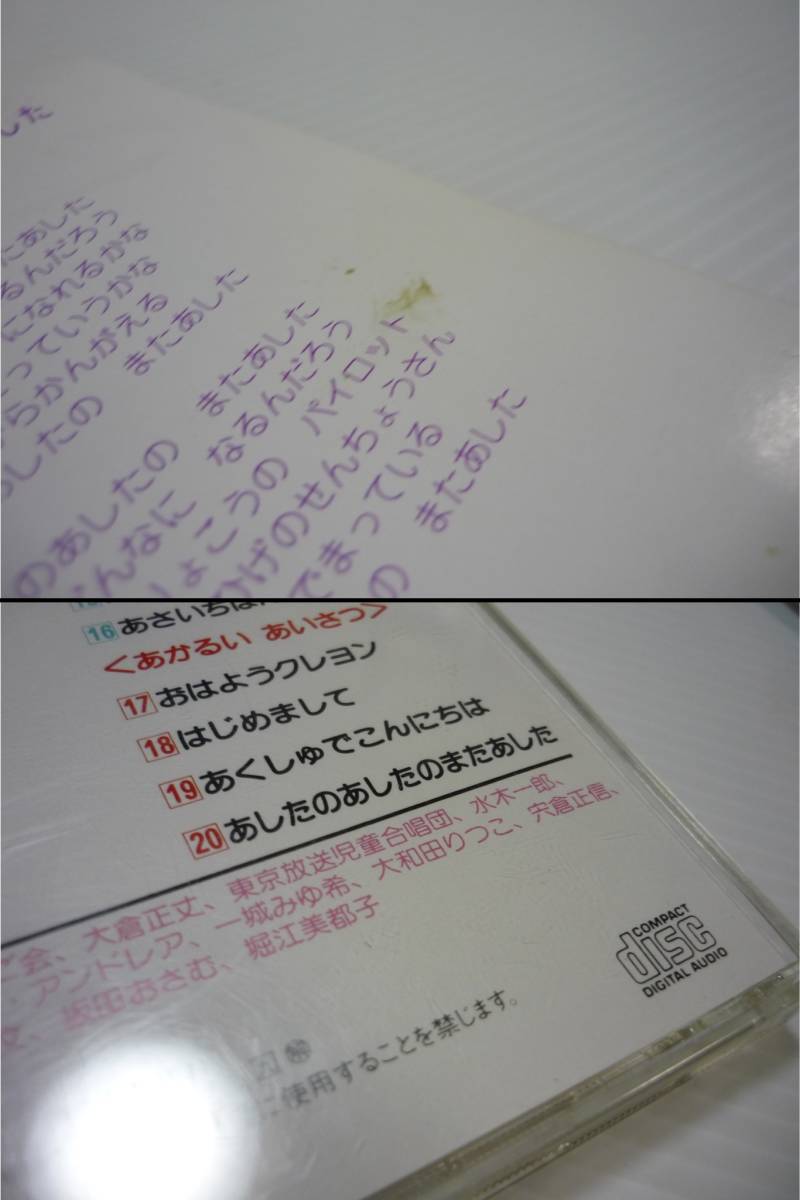 した
たあした
るんだろう
になれるかな
っていうかな
らかんがえる
したの　またあした
のあしたの　またあした
んなに　なるんだろう
しょこうの　パイロット
ひげのせんちょうさん
でまっている
の　またあした
16 あさいちば
＜あかるい あいさつ＞
17 おはようクレヨン
18 はじめまして
19 あくしゅでこんにちは
20 あしたのあしたのまたあした
会、大倉正丈、東京放送児童合唱団、水木一郎、
・アンドレア、一城みゆ希、大和田りつこ、宍倉正信、
坂田おさむ、堀江美都子
COMPACT
disc
DIGITAL AUDIO
に使用することを禁じます。